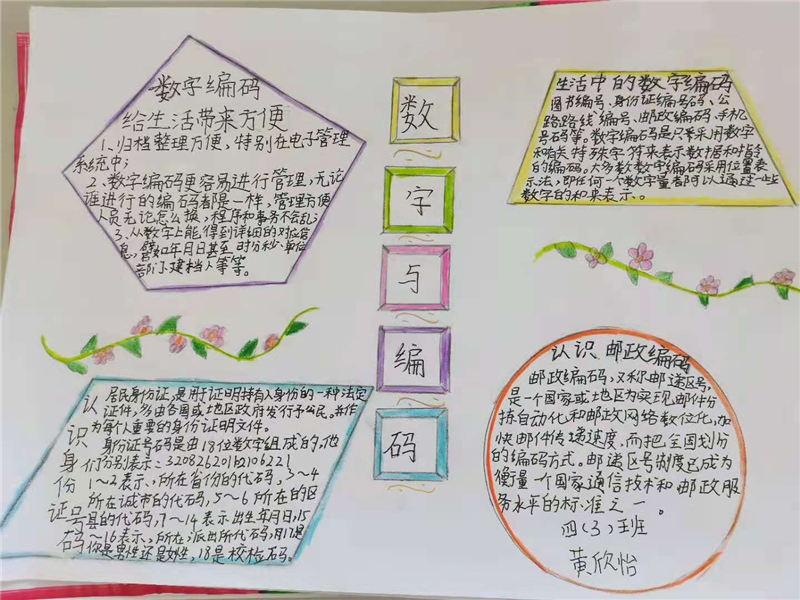 数字编码
给生活带来方便
1、归档整理方便，特别在电子管理
系统中；
2、数字编码更容易进行管理，无论
谁进行的编码都是一样，管理方便
人员无论怎么换，程序和事务不会乱；
3、从数字上能，得到详细的对应信
息，譬如年月日甚至时分秒、单位
部门、建档人等等。
数
字
与
编
码
生活中的数字编码
图书编号、身份证编号码、公
路路线编号、邮政编码、手机
号码等。数字编码是只采用数字
和有关特殊字符来表示数据和指令
的编码。大多数数字编码采用位置表
示法，即任何一个数字量都可以通过一些
数字的和来表示。
认识身份证号码
居民身份证，是用于证明持有人身份的一种法定
证件，多由各国或地区政府发行予公民。并作
为每个人重要的身份证明文件。
身份证号码是由18位数字组成的，他
们分别表示：
1～2表示，所在省份的代码，3～4
所在城市的代码，5～6所在的区
县的代码，7～14表示出生年月日，15
～16表示，所在派出所代码，17是
你是男性还是女性，18是校检码。
认识邮政编码
邮政编码，又称邮递区号，
是一个国家或地区为实现邮件分
拣自动化和邮政网络数位化，加
快邮件传递速度，而把全国划分
的编码方式。邮递区号制度已成为
衡量一个国家通信技术和邮政服
务水平的标准之一。
四(3)班
黄欣怡